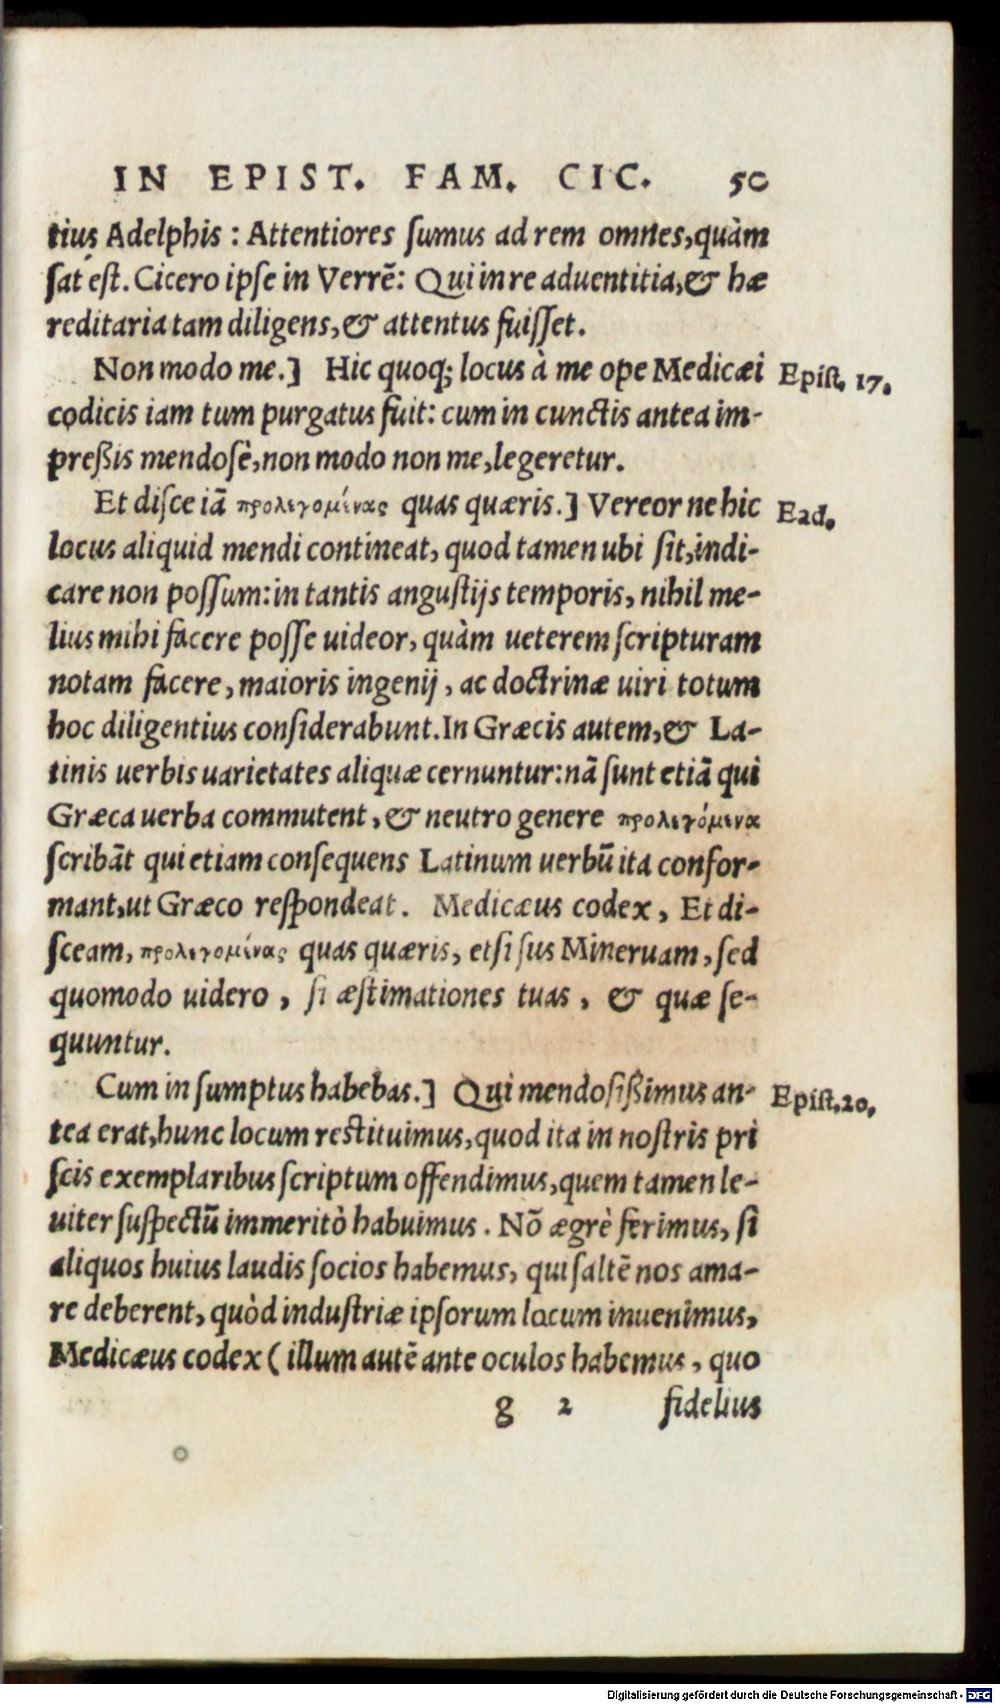 IN EPIST. FAM. CIC. 50
tius Adelphis : Attentiores ſumus ad rem omnes, quàm
ſat eſt. Cicero ipſe in Verrē: Qui in re aduentitia, & hæ
reditaria tam diligens, & attentus fuiſſet.
Non modo me.] Hic quoq; locus à me ope Medicæi Epiſt. 17.
codicis iam tum purgatus fuit: cum in cunctis antea im-
preßis mendoſè, non modo non me, legeretur.
Et diſce iā προλεγομένας quas quæris.] Vereor ne hic Ead.
locus aliquid mendi contineat, quod tamen ubi ſit, indi-
care non poſſum: in tantis anguſtijs temporis, nihil me-
lius mihi facere poſſe uideor, quàm ueterem ſcripturam
notam facere, maioris ingenij, ac doctrinæ uiri totum
hoc diligentius conſiderabunt. In Græcis autem, & La-
tinis uerbis uarietates aliquæ cernuntur: nā ſunt etiā qui
Græca uerba commutent, & neutro genere προλεγόμενα
ſcribāt qui etiam conſequens Latinum uerbū ita confor-
mant, ut Græco reſpondeat. Medicæus codex, Et di-
ſceam, προλεγομένας quas quæris, etſi ſus Mineruam, ſed
quomodo uidero, ſi æſtimationes tuas, & quæ ſe-
quuntur.
Cum in ſumptus habebas.] Qui mendoſißimus an- Epiſt. 20.
tea erat, hunc locum reſtituimus, quod ita in noſtris pri
ſcis exemplaribus ſcriptum offendimus, quem tamen le-
uiter ſuſpectū immeritò habuimus. Nō ægrè ferimus, ſi
aliquos huius laudis ſocios habemus, qui ſaltē nos ama-
re deberent, quòd induſtriæ ipſorum locum inuenimus,
Medicæus codex (illum autē ante oculos habemus, quo
g 2 fidelius
Digitalisierung gefördert durch die Deutsche Forschungsgemeinschaft - DFG